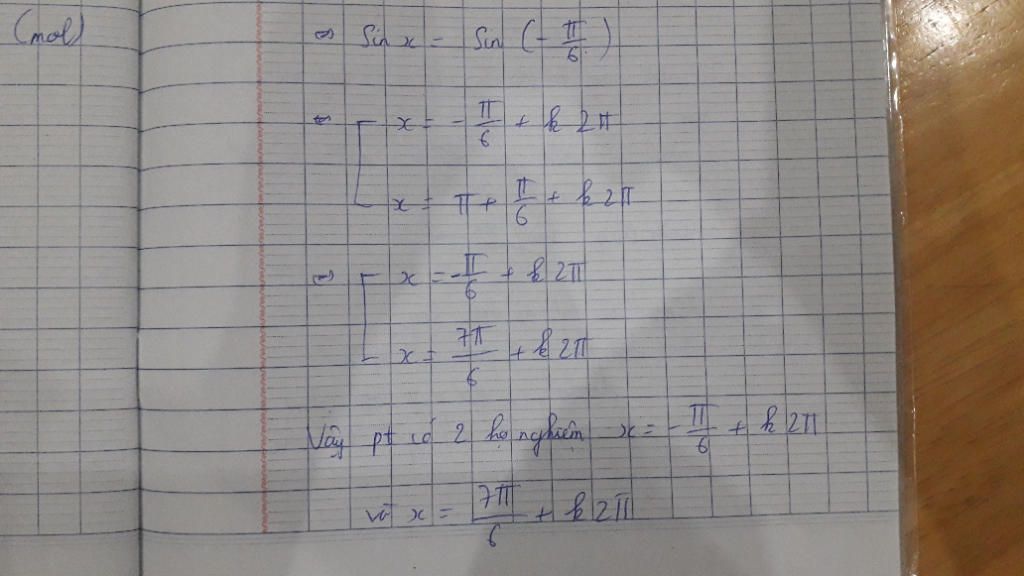 (mol)
⇔ Sin x = Sin (-π/6)
⇔ [ x = -π/6 + k2π
x = π + π/6 + k2π
⇔ [ x = -π/6 + k2π
x = 7π/6 + k2π
Vậy pt có 2 họ nghiệm x = -π/6 + k2π
và x = 7π/6 + k2π